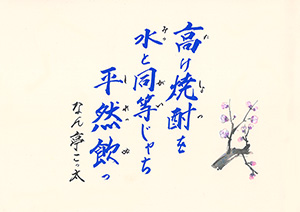 高け焼酎を
水と同等じゃち
平然飲っ
なん亭こっ太